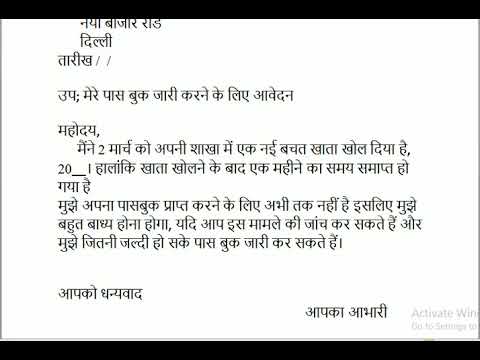 नया बाजार रोड
दिल्ली
तारीख / /
उप; मेरे पास बुक जारी करने के लिए आवेदन
महोदय,
मैंने 2 मार्च को अपनी शाखा में एक नई बचत खाता खोल दिया है,
20__। हालांकि खाता खोलने के बाद एक महीने का समय समाप्त हो
गया है
मुझे अपना पासबुक प्राप्त करने के लिए अभी तक नहीं है इसलिए मुझे
बहुत बाध्य होना होगा, यदि आप इस मामले की जांच कर सकते हैं और
मुझे जितनी जल्दी हो सके पास बुक जारी कर सकते हैं।
आपको धन्यवाद
आपका आभारी
Activate Win
Go to Settings to